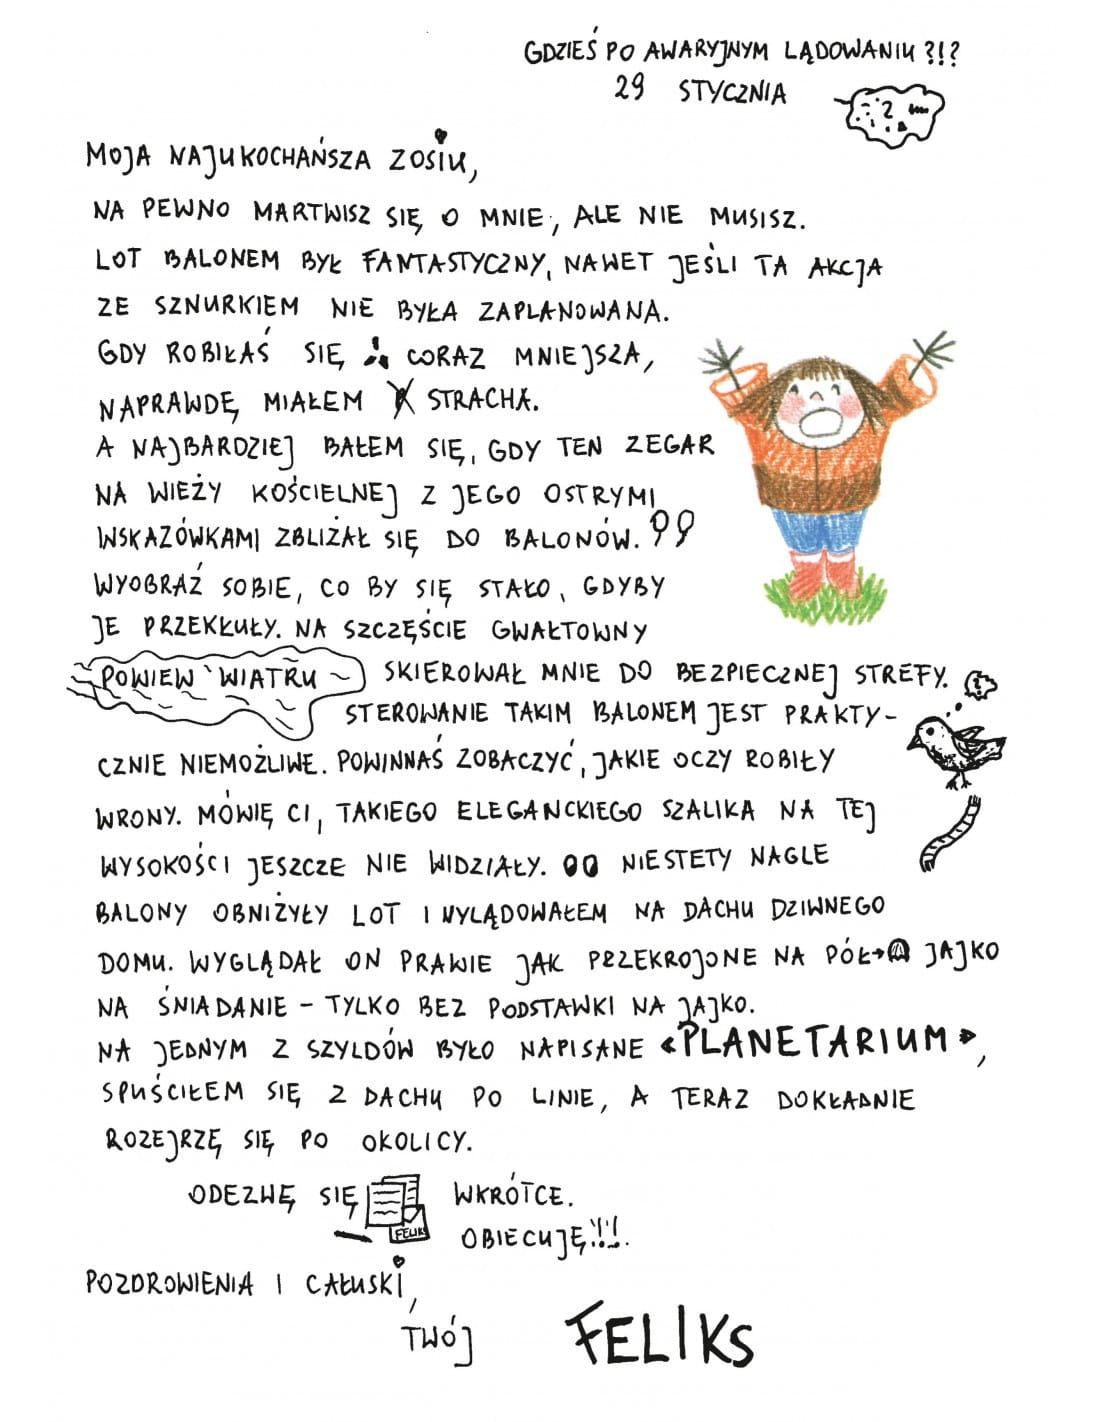 GDZIEŚ PO AWARYJNYM LĄDOWANIU ?!?
29 STYCZNIA
MOJA NAJUKOCHAŃSZA ZOSIU,
NA PEWNO MARTWISZ SIĘ O MNIE, ALE NIE MUSISZ.
LOT BALONEM BYŁ FANTASTYCZNY, NAWET JEŚLI TA AKCJA
ZE SZNURKIEM NIE BYŁA ZAPLANOWANA.
GDY ROBIŁAŚ SIĘ CORAZ MNIEJSZA,
NAPRAWDĘ MIAŁEM STRACHA.
A NAJBARDZIEJ BAŁEM SIĘ, GDY TEN ZEGAR
NA WIEŻY KOŚCIELNEJ Z JEGO OSTRYMI
WSKAZÓWKAMI ZBLIŻAŁ SIĘ DO BALONÓW.
WYOBRAŹ SOBIE, CO BY SIĘ STAŁO, GDYBY
JE PRZEKŁUŁY. NA SZCZĘŚCIE GWAŁTOWNY
POWIEW WIATRU SKIEROWAŁ MNIE DO BEZPIECZNEJ STREFY.
STEROWANIE TAKIM BALONEM JEST PRAKTY-
CZNIE NIEMOŻLIWE. POWINNAŚ ZOBACZYĆ, JAKIE OCZY ROBIŁY
WRONY. MÓWIĘ CI, TAKIEGO ELEGANCKIEGO SZALIKA NA TEJ
WYSOKOŚCI JESZCZE NIE WIDZIAŁY. NIESTETY NAGLE
BALONY OBNIŻYŁY LOT I WYLĄDOWAŁEM NA DACHU DZIWNEGO
DOMU. WYGLĄDAŁ ON PRAWIE JAK PRZEKROJONE NA PÓŁ JAJKO
NA ŚNIADANIE – TYLKO BEZ PODSTAWKI NA JAJKO.
NA JEDNYM Z SZYLDÓW BYŁO NAPISANE «PLANETARIUM»,
SPUŚCIŁEM SIĘ Z DACHU PO LINIE, A TERAZ DOKŁADNIE
ROZEJRZĘ SIĘ PO OKOLICY.
ODEZWĘ SIĘ WKRÓTCE.
FELIKS
OBIECUJĘ!!!.
POZDROWIENIA I CAŁUSKI,
TWÓJ FELIKS